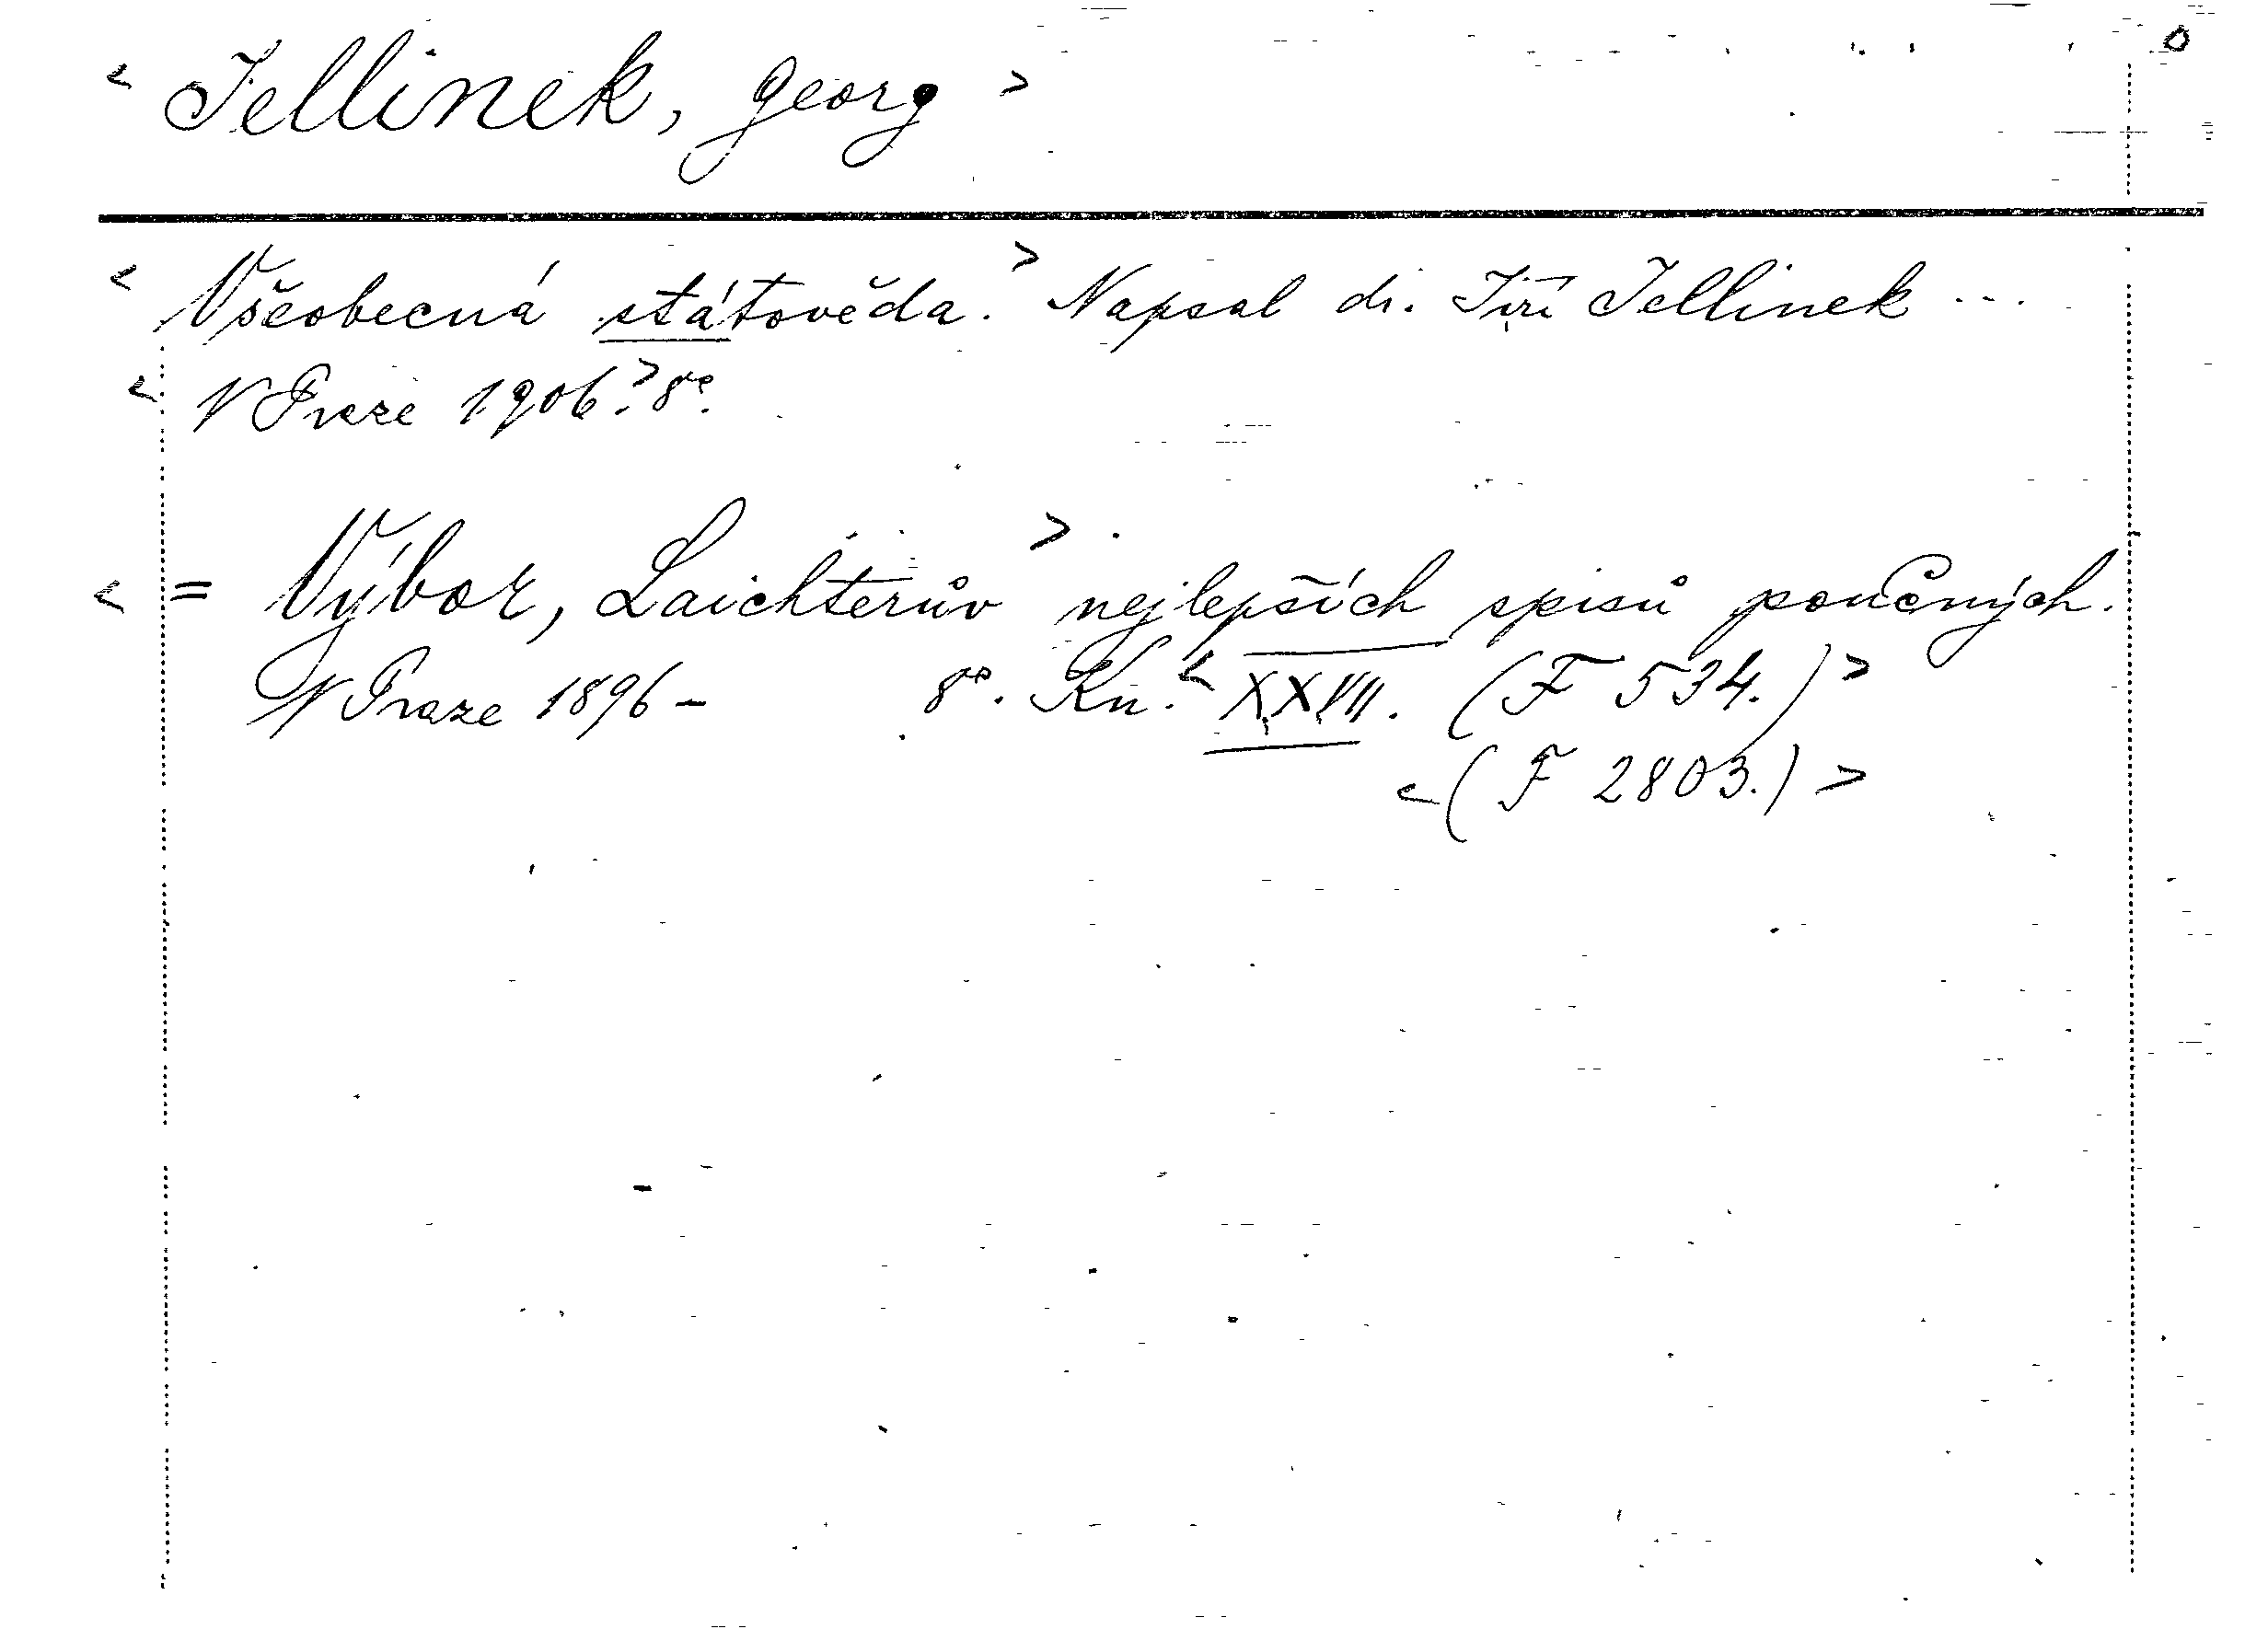 < Jellinek, Georg >
< Všeobecná státověda. > Napsal dr. Jiří Jellinek ...
< V Praze 1906. > 8°.
< = Výbor, Laichterův > nejlepších spisů poučných.
V Praze 1896 - 8°. Kn. < XXVII. (F 534.) >
< (F 2803.) >